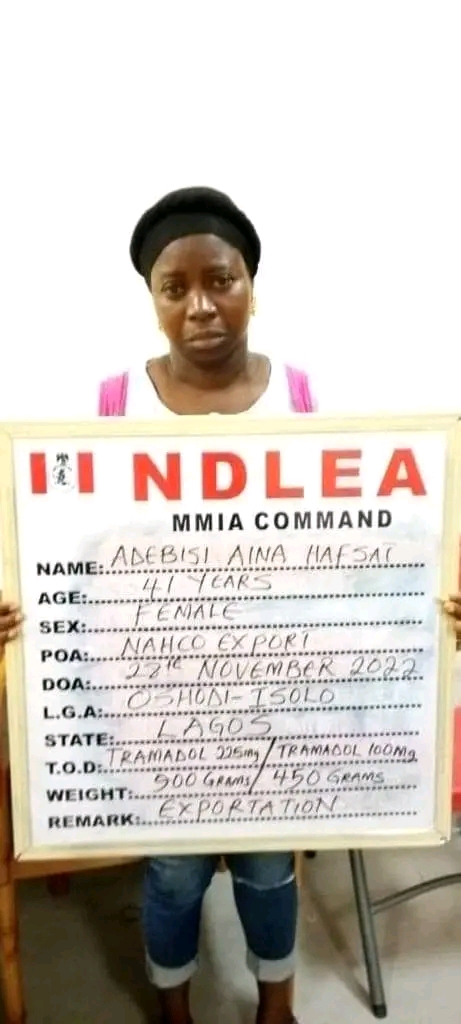 NDLEA
MMIA COMMAND
NAME: ADEBISI AINA HAFSAT
AGE: 41 YEARS
SEX: FEMALE
POA: NAHCO EXPORT
DOA: 28TH NOVEMBER 2022
L.G.A: OSHODI-ISOLO
STATE: LAGOS
T.O.D: TRAMADOL 225mg / TRAMADOL 100Mg
WEIGHT: 900 GRAMS / 450 GRAMS
REMARK: EXPORTATION